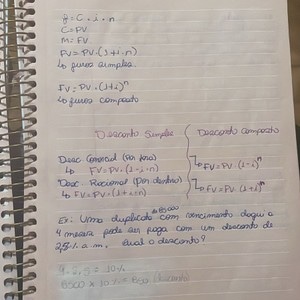 J = C . i . n
C = PV
M = FV
FV = PV . (1+i.n)
↳ juros simples.
FV = PV . (1+i)^n
↳ juros composto
Desconto Simples
Desconto Composto
Desc. Comercial (Por fora)
↳ FV = PV . (1-i.n)
↳ FV = PV . (1-i)^n
Desc. Racional (Por dentro)
↳ FV = PV . (1+i.n)
↳ FV = PV . (1+i)^n
Ex: Uma duplicata com vencimento daqui a
4 meses pode ser paga com um desconto de
2,5% a.m. Qual o desconto?
4 . 2,5 = 10%